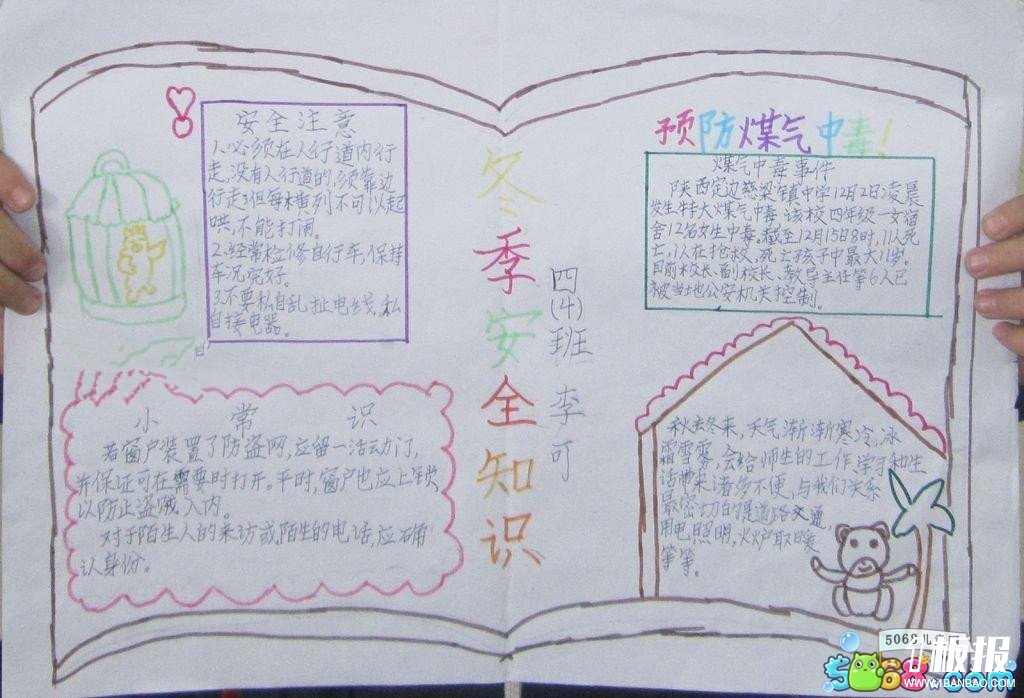 安全注意
1、必须在人行道内行
走,没有人行道的,须靠边
行走3但每木横列不可以起
哄,不能打闹。
2、经常检修自行车,保持
车况完好。
3、不要私自乱扯电线,私
自接电器。
小常识
若窗户装置了防盗网,应留一活动门,
并保证可在需要时打开。平时,窗户也应上锁
以防止盗贼入内。
对于陌生人的来访或陌生的电话,应确
认身份。
冬季安全知识
四(4)班 李可
预防煤气中毒!
煤气中毒事件
陕西定边慈梁镇中学12月2日凌晨
发生特大煤气中毒该校四年级一女宿
舍12名女生中毒。截至12月15日8时,11人死
亡,1人在抢救,死亡孩子中最大11岁。
目前校长、副校长、教导主任等6人已
被当地公安机关控制。
秋去冬来,天气渐渐寒冷,冰
霜雪雾,会给师生的工作学习和生
活带来诸多不便,与我们关系
最密切的是道路交通,
用电照明,火炉取暖
等等。
5068儿童
板报
WWW.1BANBAO.COM